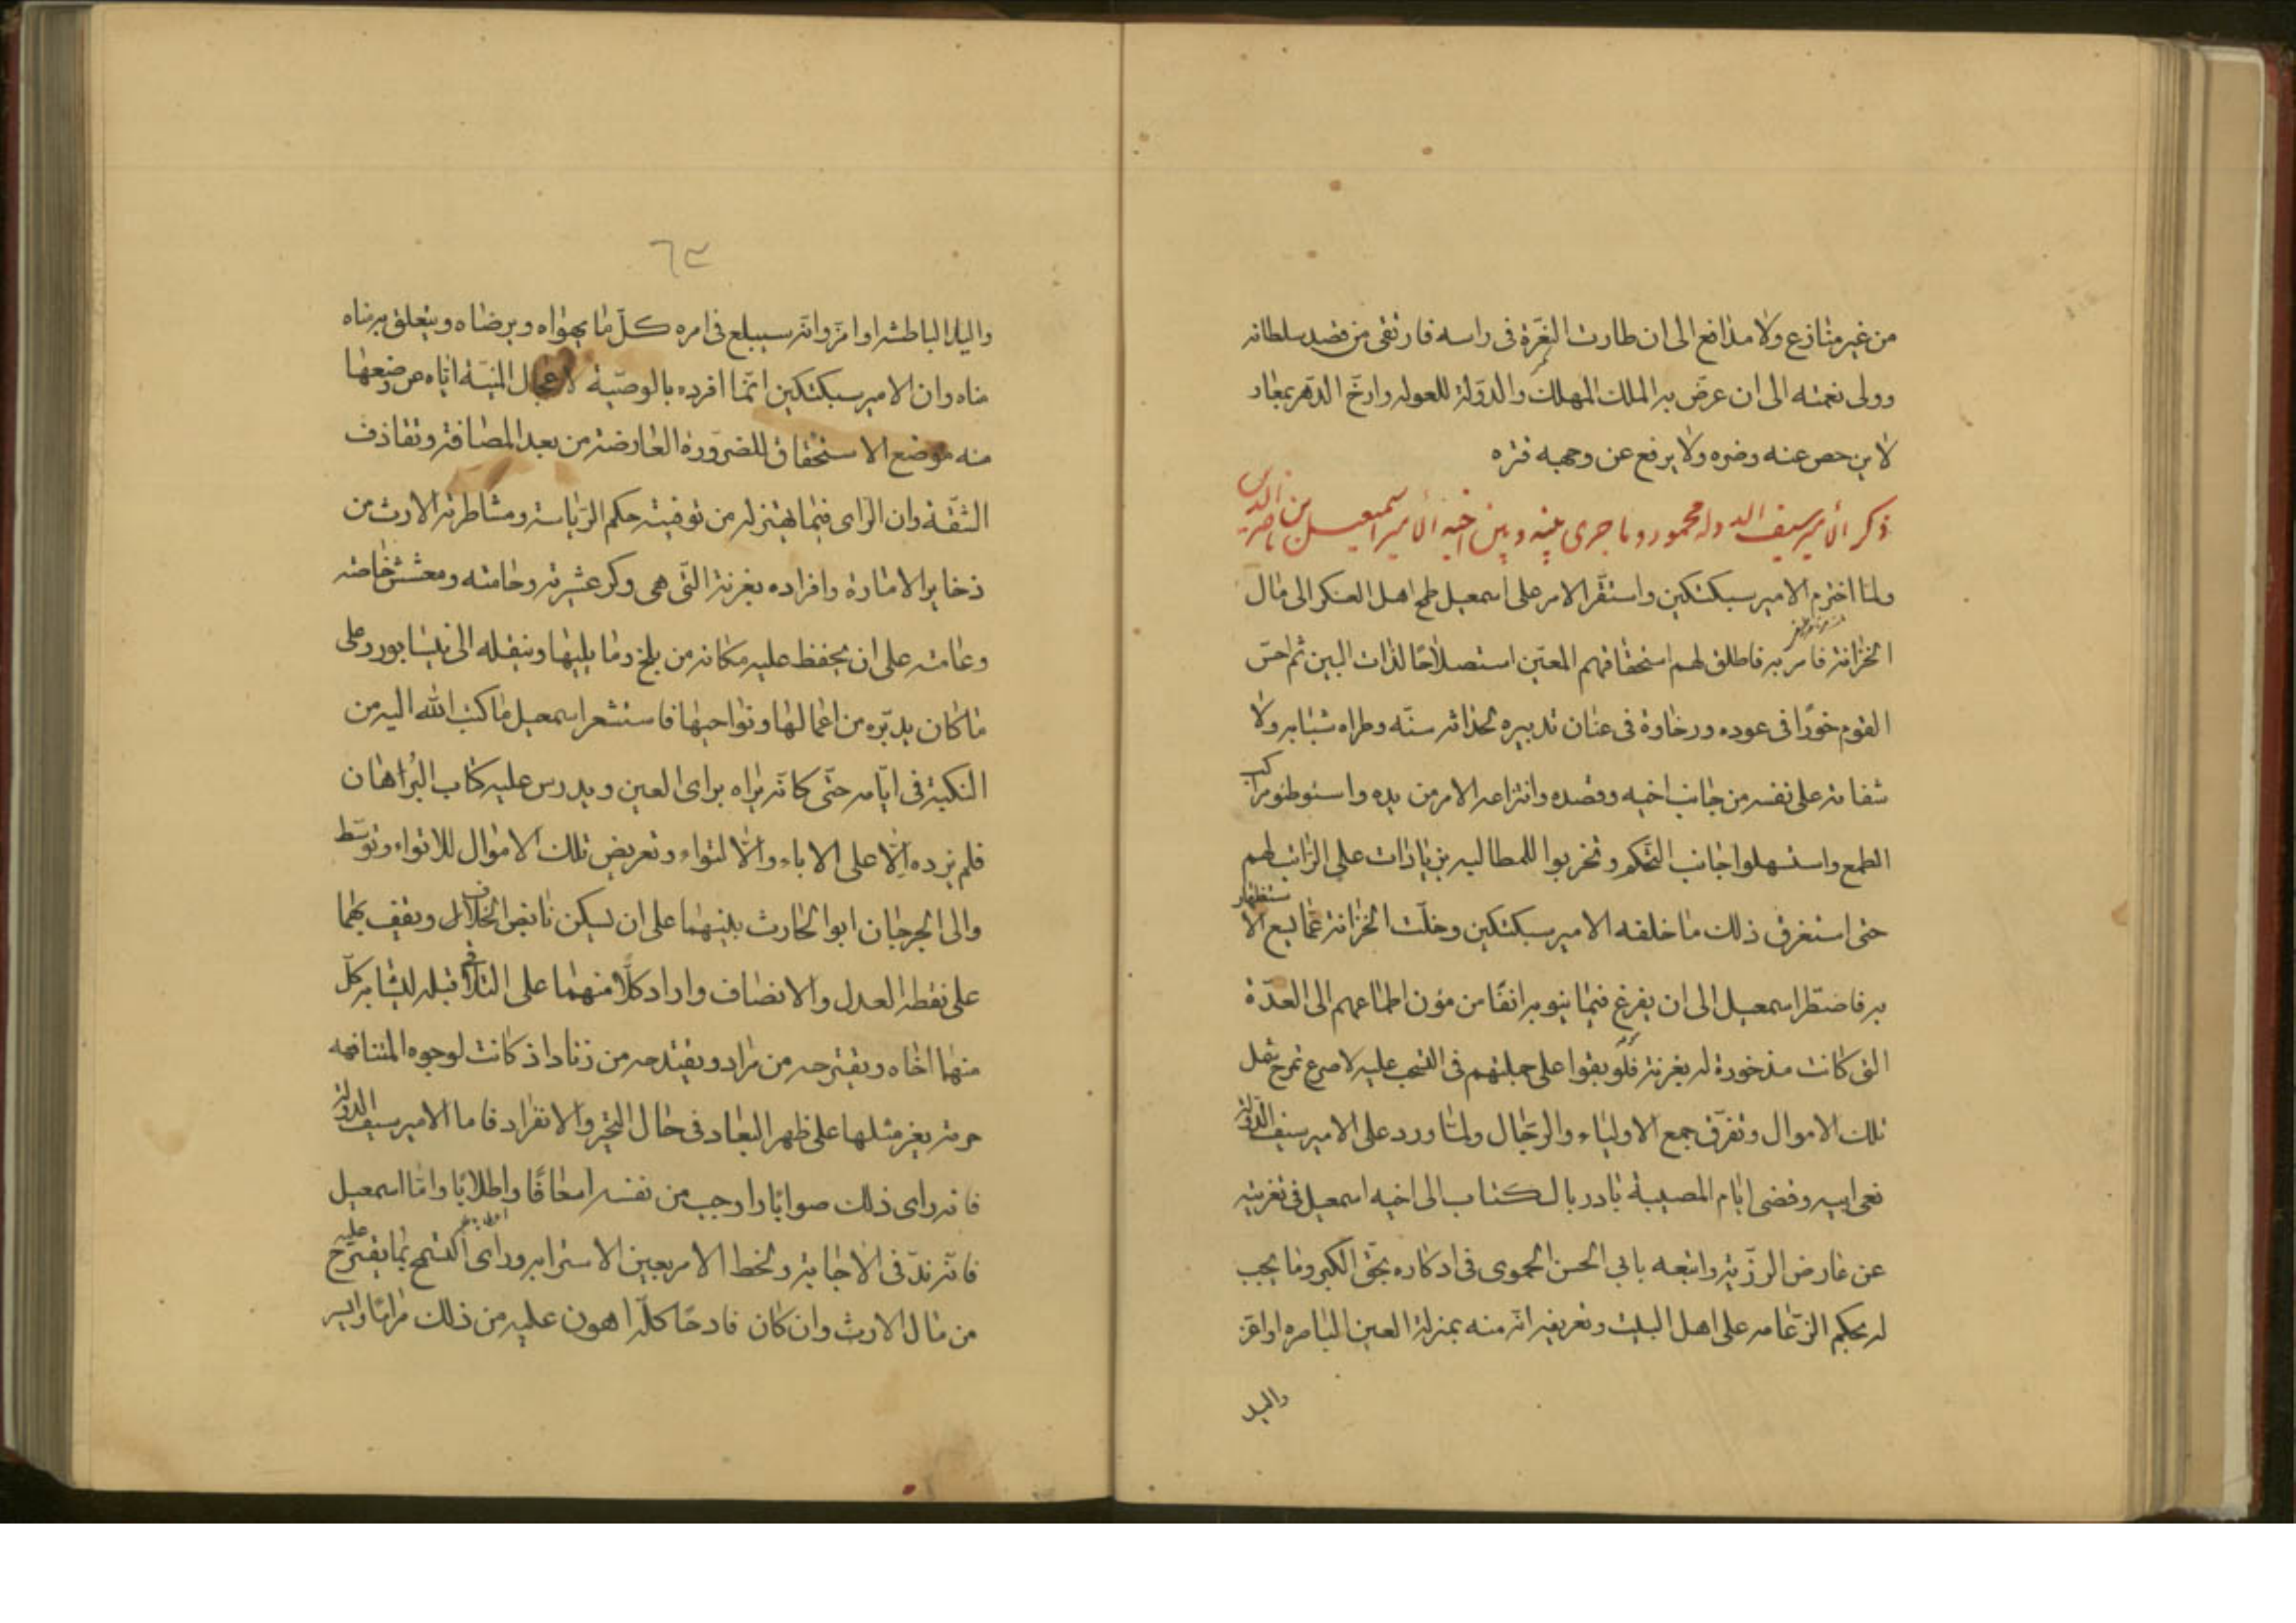 من غير منازع ولا مدافع الى ان طارت النعرة فى راسه فارتقى من قصد سلطانه
وولى نعمته الى ان عرض به الملك المهلك والدولة للعوله وارخ الدهر بمعار
لا يرحص عنه وضره ولا يرفع عن وجهه قتره
ذكر الأمير سيف الدوله محمود وما جرى بينه وبين اخيه الأمير اسمعيل بن ناصر الدين
ولما اخترم الامير سبكتكين واستقر الامر على اسمعيل طمح اهل العسكر الى مال
الخزانة فامر به فاطلق لهم استحقاقهم المعين استصلاحا لذات البين ثم احس
القوم خورا فى عوده ورخاوة فى عنان تدبيره لحداثة سنه وطراه شبابه ولا
شفاته على نفسه من جانب اخيه وقصده وانتزاعه الامر من يده واستوطئو مركب
الطمع واستسهلوا جانب التحكم وتحزبوا للمطالبه بزيادات على الراتب لهم
حتى استغرق ذلك ما خلفه الامير سبكتكين وخلت الخزانة عما يسع الاستظهار
به فاضطر اسمعيل الى ان يفرغ فيما ينوبه انفا من مؤن اطماعهم الى العدة
التى كانت مذخورة له بغزنة فلو بقوا على جملتهم فى التسحب عليه لاسرع تمرج شمل
تلك الاموال وتفرق جمع الاولياء والرجال ولما ورد على الامير سيف الدولة
نعى ابيه وقضى ايام المصيبة بادر بالكتاب الى اخيه اسمعيل فى تعزيته
عن عارض الرزية واتبعه بابي الحسن الحموى فى ادكاره بحق الكبر وما يجب
له بحكم الزعامه على اهل البيت وتعريفه انه منه بمنزلة العين الباصره او اعز
واليد
٦٣
واليد الباطشه او امر وانه سيبلع فى امره كل ما يهواه ويرضاه ويتعلق به مناه
مناه وان الامير سبكتكين انما افرده بالوصية لاعجال المنية اياه عن وضعها
منه موضع الاستحقاق للضرورة العارضة من بعد المصافة وتقاذف
الشقة وان الراى فيما يهتز له من توفيته حكم الرياسة ومشاطرته الارث من
ذخاير الامارة وافراده بغزنة التى هى وكر عشيرته وحامته ومعشش خاصته
وعامته على ان يحفظ عليه مكانه من بلخ وما يليها وينقله الى نيسابور وعلى
ما كان يدبره من اعمالها ونواحيها فاستشعر اسمعيل ما كتب الله اليه من
النكبة فى ايامه حتى كانه يراه براى العين ويدرس عليه كتاب البراهان
فلم يزده الا على الاباء والا التواء وتعريض تلك الاموال للاتواء وتوسط
والى الجرجان ابو الحارث بينهما على ان يسكن نابض الخلاف ويقف بهما
على نقطة العدل والانصاف واراد كلا منهما على التلاقى قبله ليشابه كل
منهما اخاه ويقترحه من مراد ويقتدحه من زناد اذ كانت لوجوه المتنافهه
حرمة يعز مثلها على ظهر البعاد فى حال التحيز والانفراد فاما الامير سيف الدولة
فانه راى ذلك صوابا واوجب من نفسه اسعافا واطلابا واما اسمعيل
فانه ند فى الاجابة ولحظ الامر بعين الاسترابه وراى التسمح بما يقترح عليه
من مال الارث وان كان فادحا كله اهون عليه من ذلك مراما وايسر